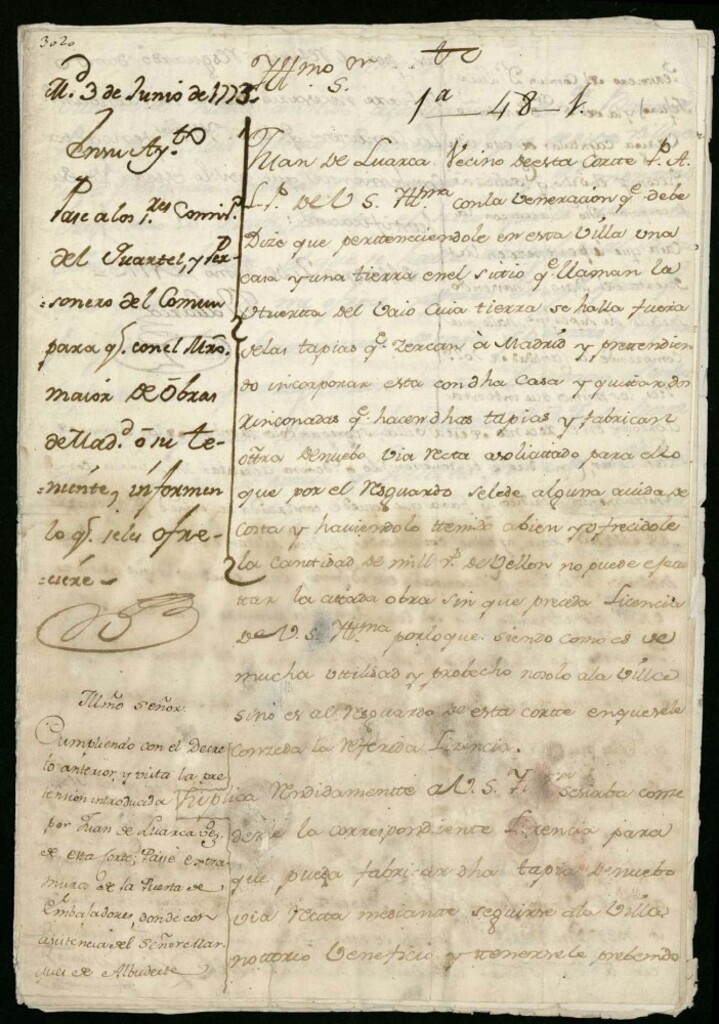 3020
M.d 3 de Junio de 1773.
En su Ay.to
Pase a los s.res Comis.s
del Quartel, y Per-
sonero del Comun
para q.e con el Mro.
maior de Obras
de Mad.d ó su te-
niente, informen
lo q.e se les ofre-
ciere
Illmo Señor.
Cumpliendo con el Decre-
to anterior, y vista la pre-
tension introducida
por Juan de Luarca vez.o
de esta Corte; Pasé extra-
muros de la Puerta de
Embajadores, donde con
asistencia del Señor Mar-
ques de Albudeite
Yllmo S.or
1a 48 1.
Juan de Luarca Vecino de esta Corte P. A.
L. P. de V. S. Yllma con la veneracion q.e debe
Dize que perteneciendole en esta Villa una
casa y una tierra en el sitio q.e llaman la
Huertta del Vaio Cuia tierra se halla fuera
de las tapias q.e zercan à Madrid y prettendien
do incorporar esta con dha Casa y quitar dos
Rinconadas q.e hacen dhas tapias y fabricar
ottra de nuebo via recta a solicitado para ello
que por el Resguardo se le de alguna aiuda de
costa y haviendolo ttenido a bien y ofrecidole
la cantidad de mill r.s de Vellon no puede efecu
ttar la citada obra sin que preceda Licencia
de V. S. Yllma por lo que siendo como es de
mucha utilidad y probecho no solo a la Villa
sino es al Resguardo de esta corte en que se le
conzeda la Referida Lizencia.
Suplica Rendidamentte a V. S. Y. se sirba conze
derle la correspondiente Lizencia para
que pueda fabricar dha tapia de nuebo
via Recta mediante seguirse a la Villa
nottorio Veneficio y ttenersele prebenido